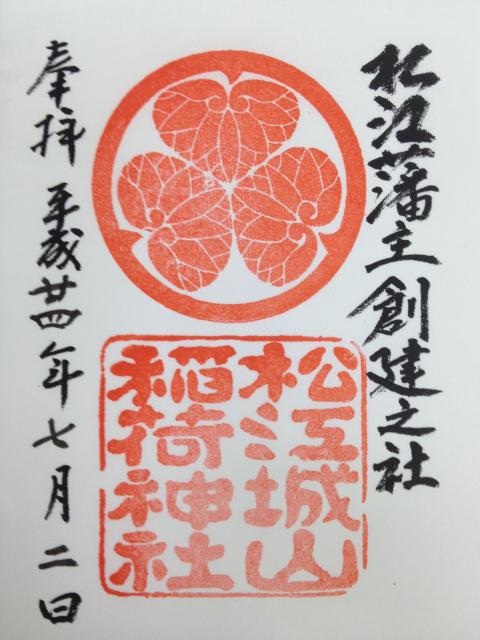 松江藩主創建之社
松江城山
稲荷神社
奉拝 平成廿四年七月二日